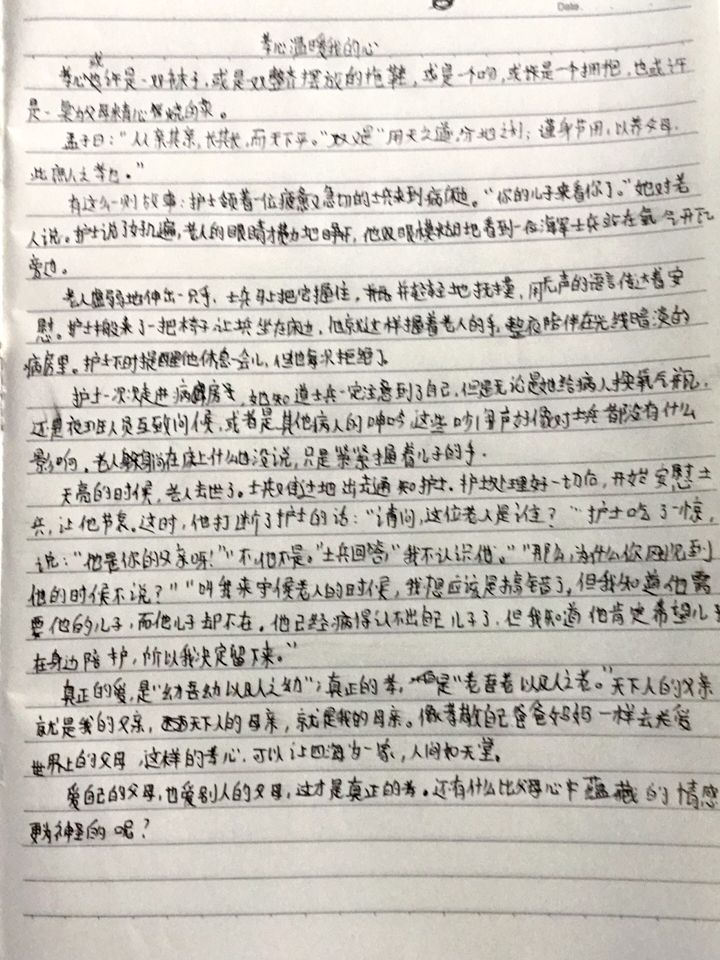 Date.
孝心温暖我的心
孝心或许是一双袜子,或是一双整齐摆放的拖鞋,或是一个吻,或许是一个拥抱,也或许
是一桌为父母精心烹烧的菜。
孟子曰:“人人亲其亲,长其长,而天下平。”又曰“用天之道,分地之利;谨身节用,以养父母,
此庶人之孝也。”
有这么一则故事:护士领着一位疲惫又急切的士兵来到病床边。“你的儿子来看你了。”她对老
人说。护士说了好几遍,老人的眼睛才勉力地睁开,他双眼模糊地看到一位海军士兵站在氧气开瓦
旁边。
老人虚弱地伸出一只手,士兵马上把它握住,并轻轻地抚摸,用无声的语言传达着安
慰。护士搬来了一把椅子让士兵坐在床边,他就这样握着老人的手,整夜陪伴在光线暗淡的
病房里。护士不时提醒他休息一会儿,但他每次拒绝了。
护士一次次走进病房,她知道士兵一定注意到了自己,但是无论是她给病人换氧气瓶,
还是夜班人员互致问候,或者是其他病人的呻吟,这些吵闹声好像对士兵都没有什么
影响。老人躺在床上什么也没说,只是紧紧握着儿子的手。
天亮的时候,老人去世了。士兵走出去通知护士。护士处理好一切后,开始安慰士
兵,让他节哀。这时,他打断了护士的话:“请问,这位老人是谁?”护士吃了一惊,
说:“他是你的父亲呀!”“不,他不是。”士兵回答,“我不认识他。”“那么,为什么你刚见到
他的时候不说?”“叫我来守候老人的时候,我想应该是搞错了,但我知道他需
要他的儿子,而他儿子却不在。他已经病得认不出自己儿子了,但我知道他肯定希望儿子
在身边陪护,所以我决定留下来。”
真正的爱,是“幼吾幼以及人之幼”;真正的孝,是“老吾老以及人之老。”天下人的父亲
就是我的父亲,天下人的母亲,就是我的母亲。像孝敬自己爸爸妈妈一样去关爱
世界上的父母,这样的孝心,可以让四海为一家,人间如天堂。
爱自己的父母,也爱别人的父母,这才是真正的孝。还有什么比父母心中蕴藏的情感
更为神圣的呢?